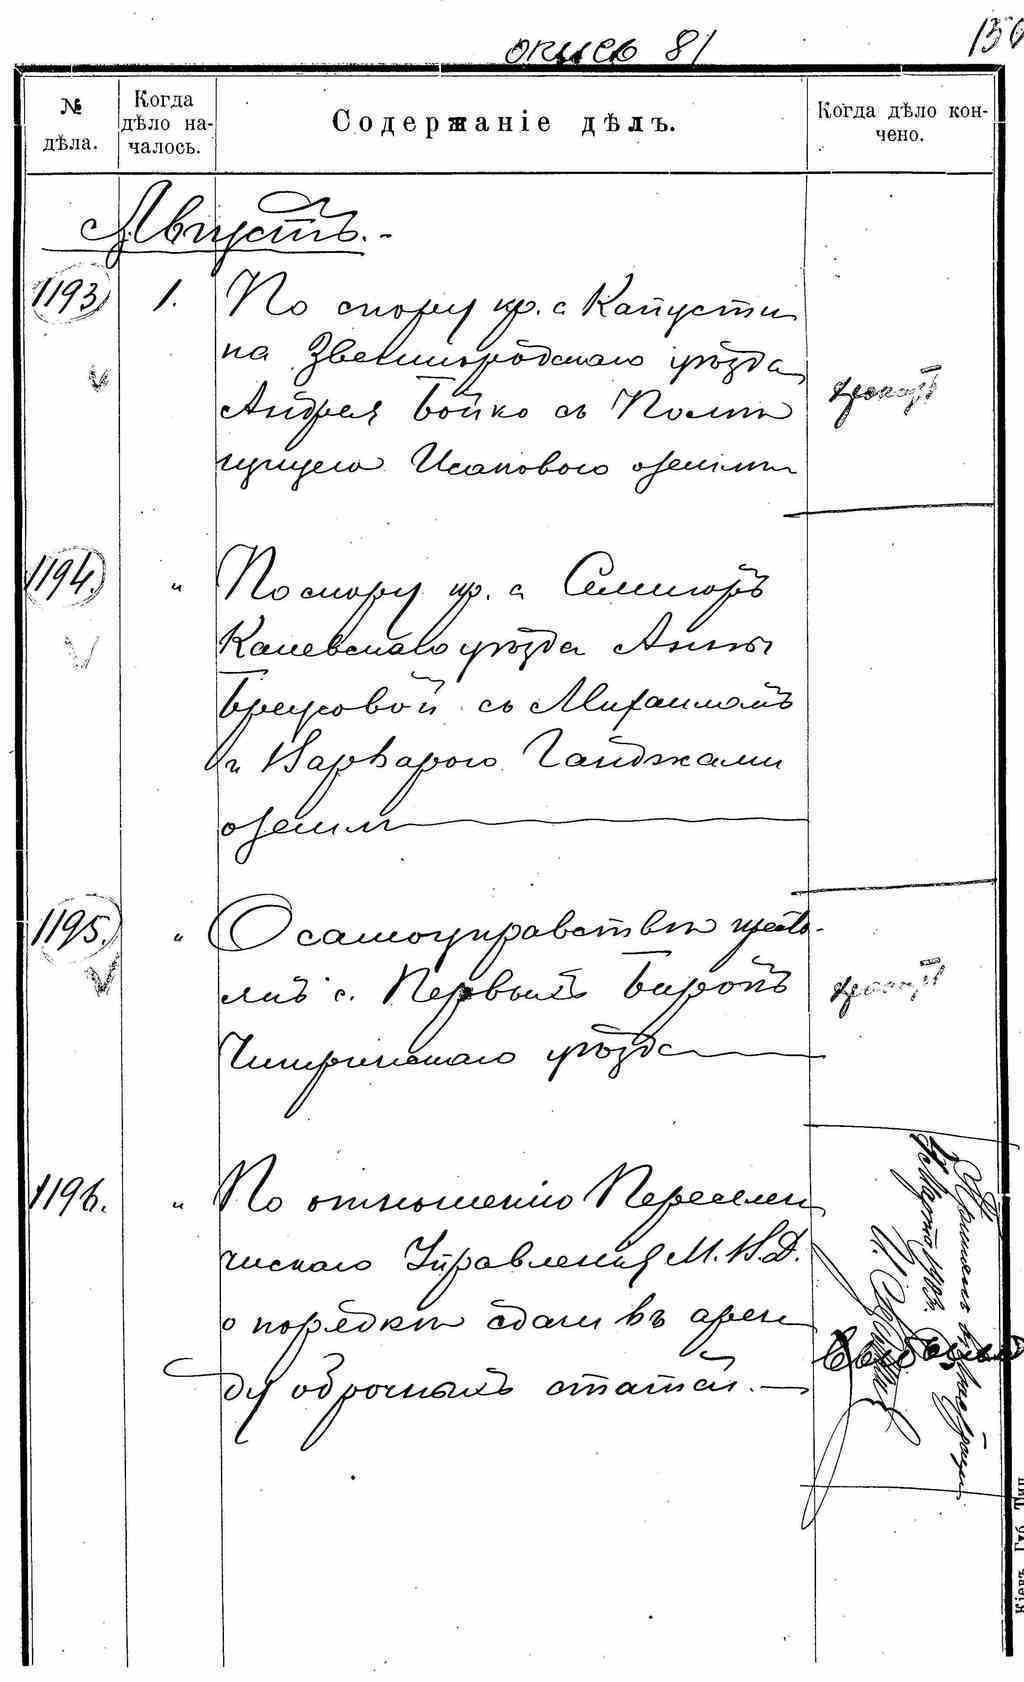 опись 81
150
№ дѣла.
Когда дѣло началось.
Содержаніе дѣлъ.
Когда дѣло кончено.
Августъ.-
1193
1.
По спору кр. с Капусти
на Звенигородскаго уѣзда
Андрея Бойко съ
Исаковою о землѣ
1194.
"
По спору кр. с. Селигоръ
Каневскаго уѣзда Анны
съ Михаиломъ
и Варварою Гайджами
о землѣ
1195.
"
О самоуправствѣ жите-
лей с. Первыхъ
Чигиринскаго уѣзда
1196.
"
По отношенію Переселен
ческаго Управленія М.В.Д.
о порядкѣ сдачи въ арен
ду оброчныхъ статей.-
Кіевъ. Губ. Тип.